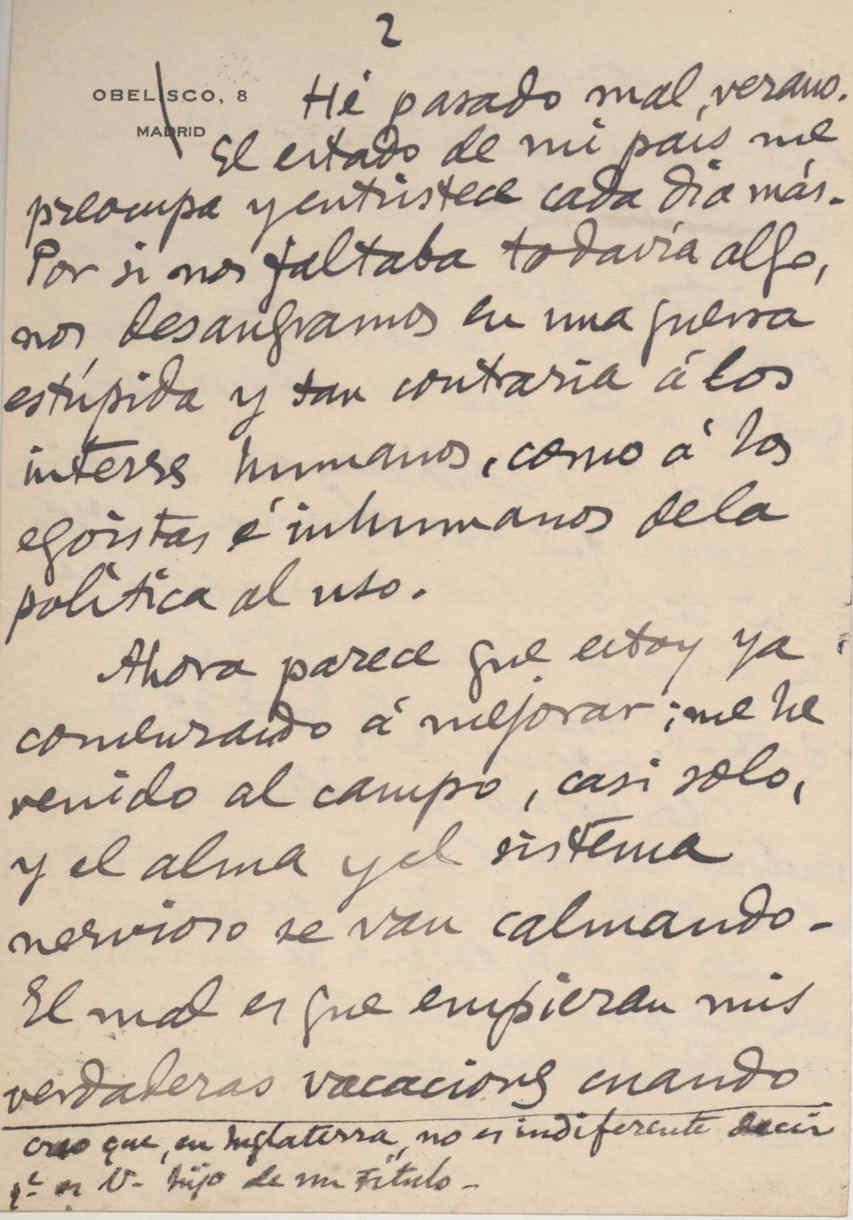 2
OBELISCO, 8
MADRID
Hé pasado mal verano.
El estado de mi país me
preocupa y entristece cada dia más.
Por si nos faltaba todavía algo,
nos desangramos en una guerra
estúpida y tan contraria á los
interess humanos, como á los
egoistas é inhumanos de la
política al uso.
Ahora parece que estoy ya
comenzando á mejorar; me he
venido al campo, casi solo,
y el alma y el sistema
nervioso se van calmando -
El mal es que empiezan mis
verdaderas vacaciones cuando
creo que, en Inglaterra, no es indiferente decir
q.e es V. hijo de un Título -